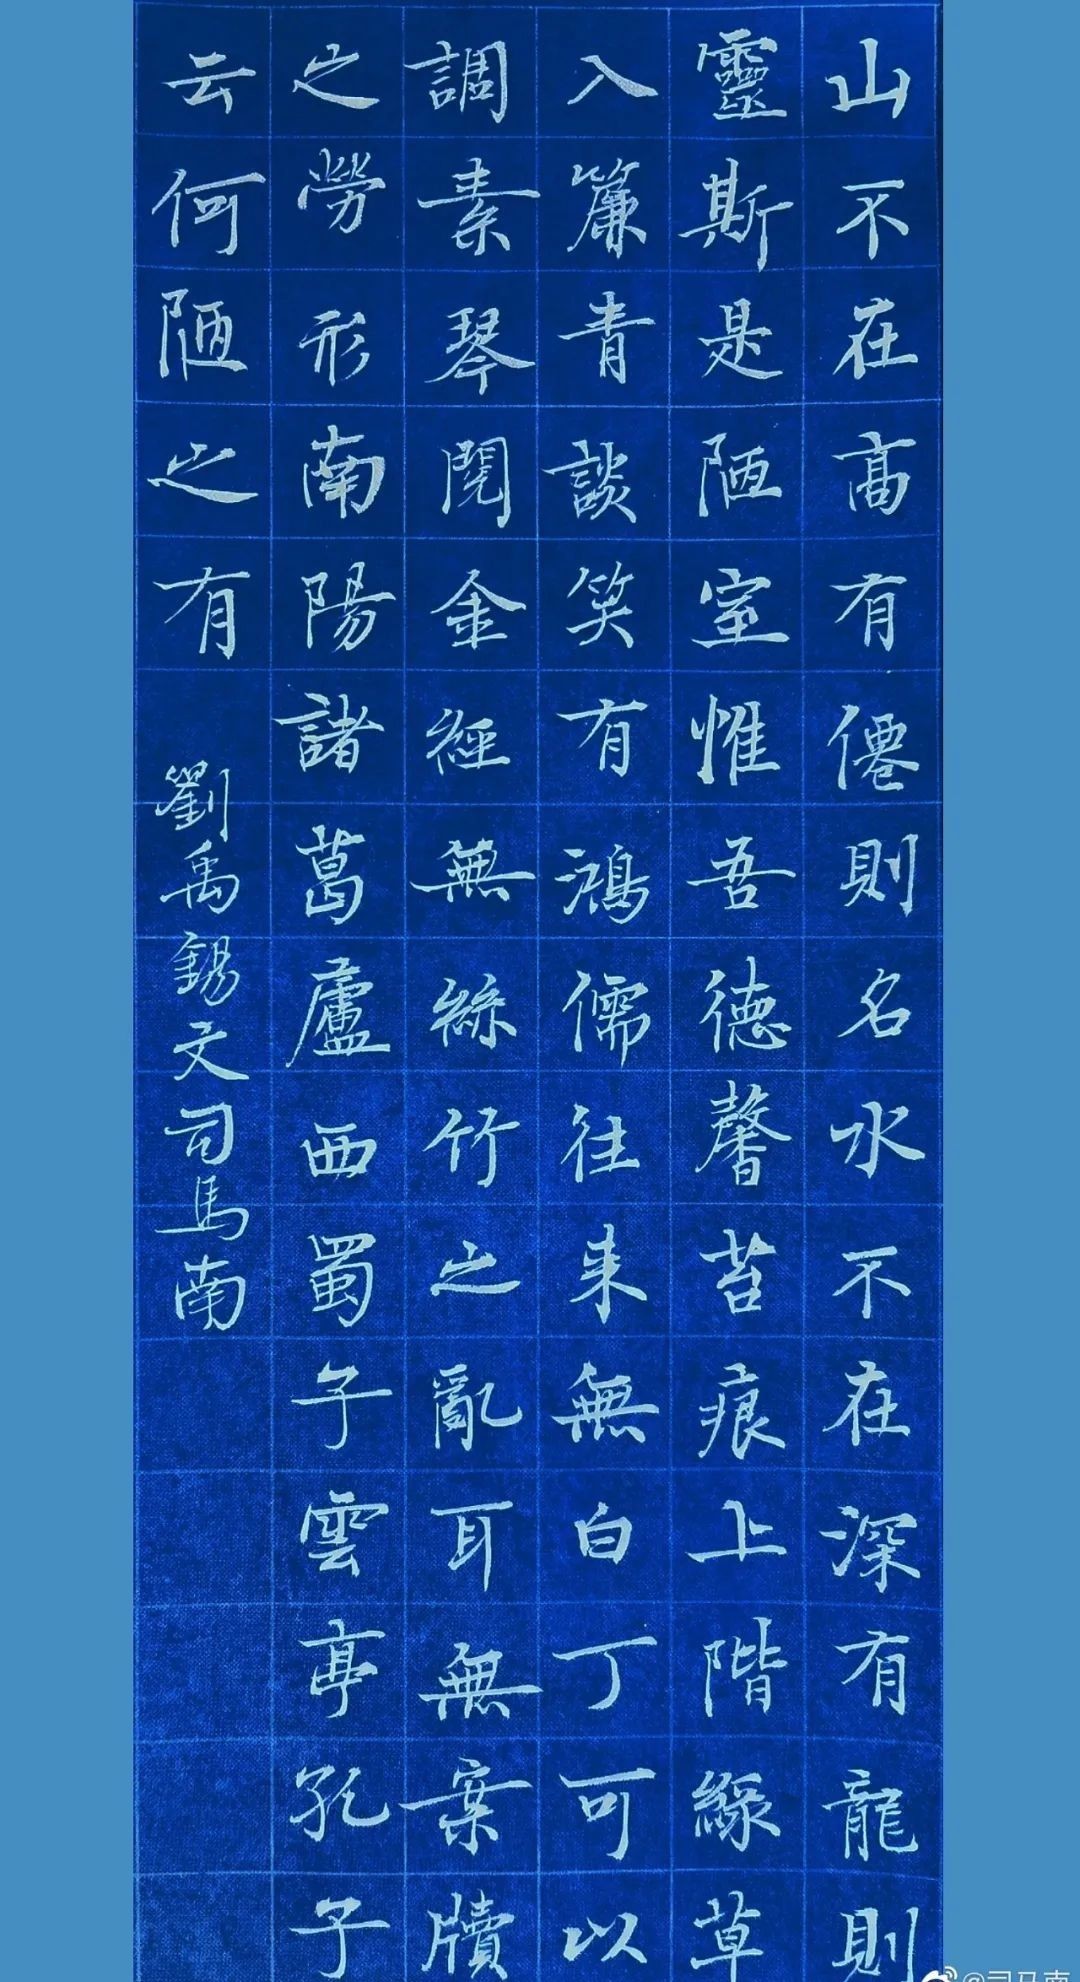 山不在髙有僊則名水不在深有龍則
靈斯是陋室惟吾徳馨苔痕上階綠草
入簾青談笑有鴻儒往来無白丁可以
調素琴閱金經無絲竹之亂耳無案牘
之勞形南陽諸葛廬西蜀子雲亭孔子
云何陋之有
劉禹錫文司馬南
@司马南